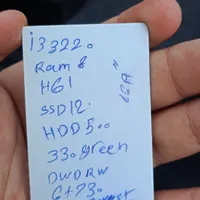 i3 3220
Ram 8
H61
SSD 12.
HDD 500
330 green
DVD RW